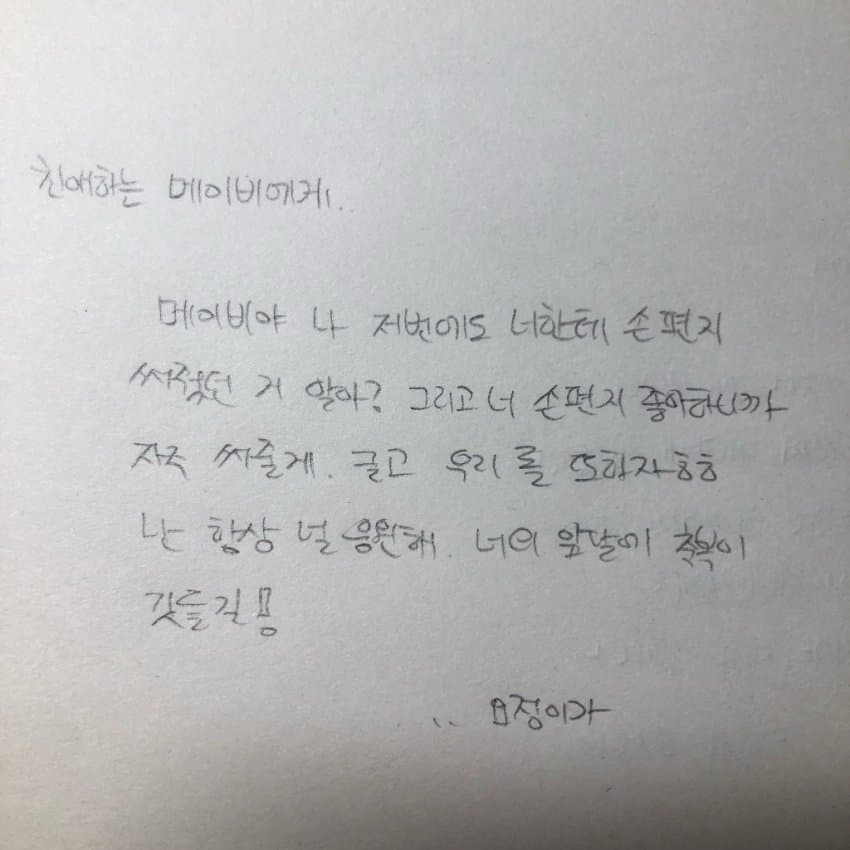 친애하는 메이비에게..
메이비야 나 저번에도 너한테 손편지
써줬던 거 알아? 그리고 너 손편지 좋아하니까
자주 써줄게. 글고 우리 롤 또하자 ㅎㅎ
난 항상 널 응원해. 너의 앞날에 축복이
깃들길!!
.. 요정이가